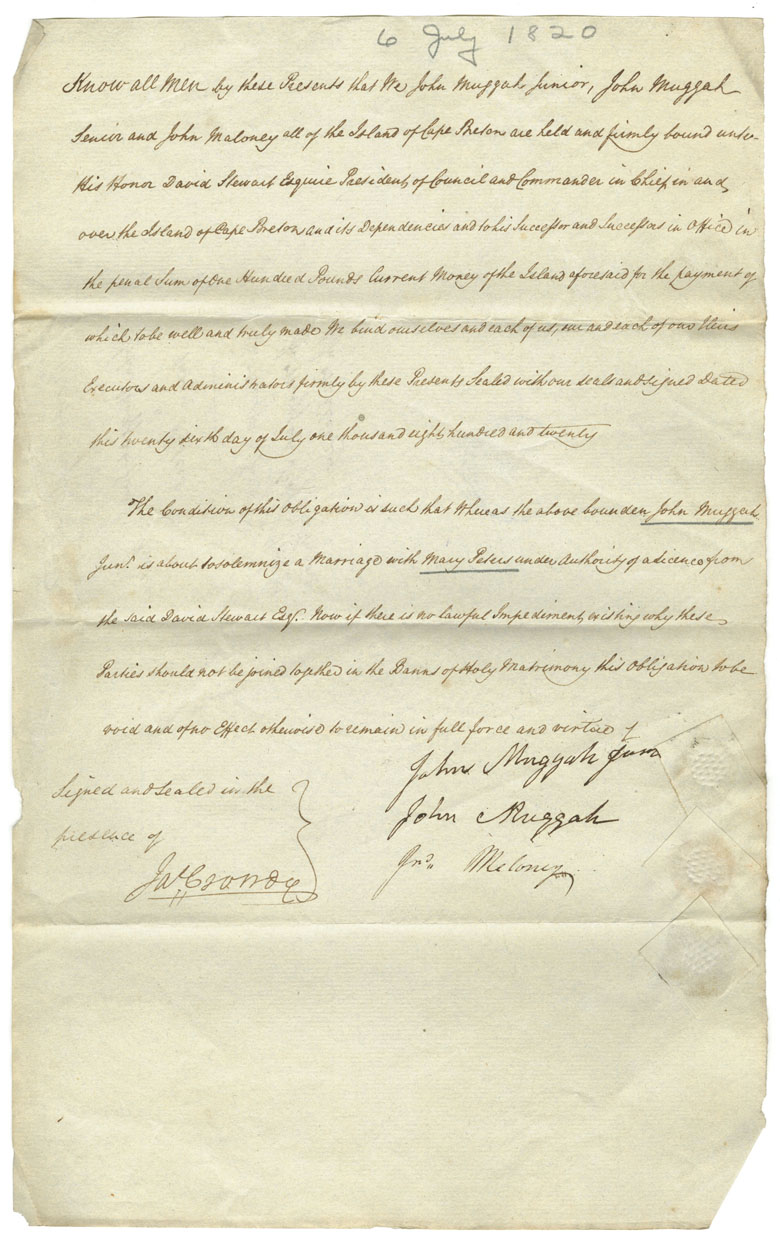 6 July 1820
Know all Men by these Presents that We John Muggah Junior, John Muggah
Senior and John Maloney all of the Island of Cape Breton are held and firmly bound unto
His Honor David Stewart Esquire President of Council and Commander in Chief in and
over the Island of Cape Breton and its Dependencies and to his Successor and Successors in Office in
the penal Sum of One Hundred Pounds Current Money of the Island aforesaid for the payment of
which to be well and truly made We bind ourselves and each of us, our and each of our Heirs
Executors and Administrators firmly by these Presents Sealed with our seals and signed Dated
this twenty sixth day of July one thousand eight hundred and twenty
The Condition of this Obligation is such that Whereas the above bounden John Muggah
Junr. is about to solemnize a Marriage with Mary Peters under Authority of a Licence from
the said David Stewart Esqr. Now if there is no lawful Impediment existing why these
Parties should not be joined together in the Banns of Holy Matrimony this Obligation to be
void and of no Effect otherwise to remain in full force and virtue
John Muggah Junr
Signed and Sealed in the
John Muggah
presence of
Jno. Meloney
Jas Crowdy